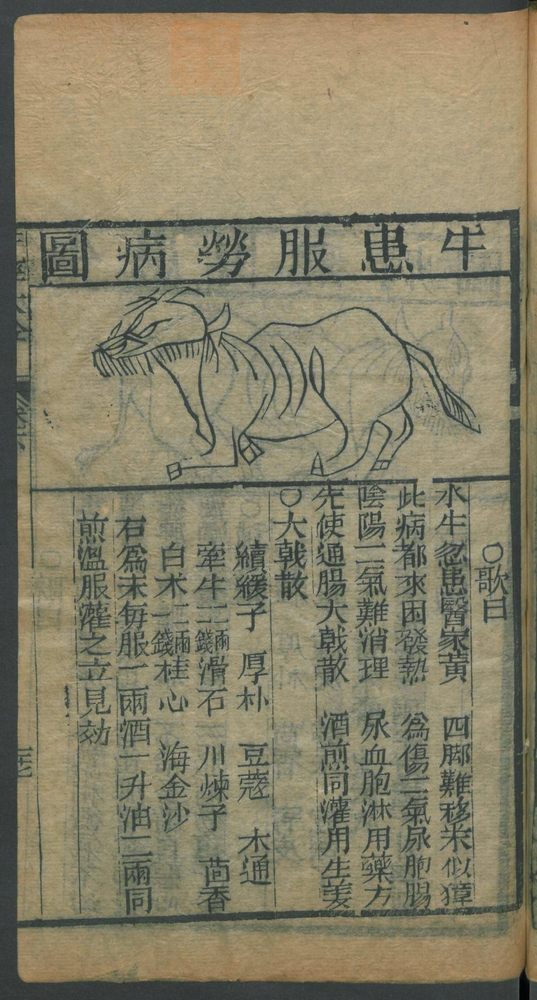 牛患服勞病圖
○歌曰
水牛忽患醫家黃 四脚難移米似獐
此病都來因發熱 爲傷二氣尿胞腸
陰陽二氣難消理 尿血胞淋用藥方
先使通腸大戟散 酒煎同灌用生姜
○大戟散
續緩子 厚朴 豆蔻 木通
牽牛二兩二錢滑石 川煉子 茴香
白术二兩二錢桂心 海金沙
右爲末每服一兩酒一升油二兩同
煎溫服灌之立見効